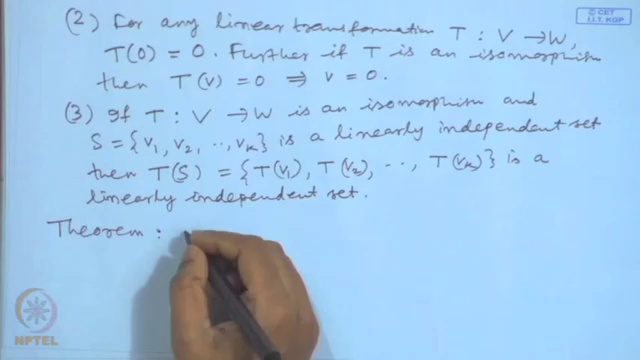 © CET
I.I.T. KGP
(2) For any linear transformation T : V → W,
T(0) = 0. Further if T is an isomorphism
then T(v) = 0 ⇒ v = 0.
(3) If T : V → W is an isomorphism and
S = {v₁, v₂, .., vₖ} is a linearly independent set
then T(S) = {T(v₁), T(v₂), .., T(vₖ)} is a
linearly independent set.
Theorem :
NPTEL